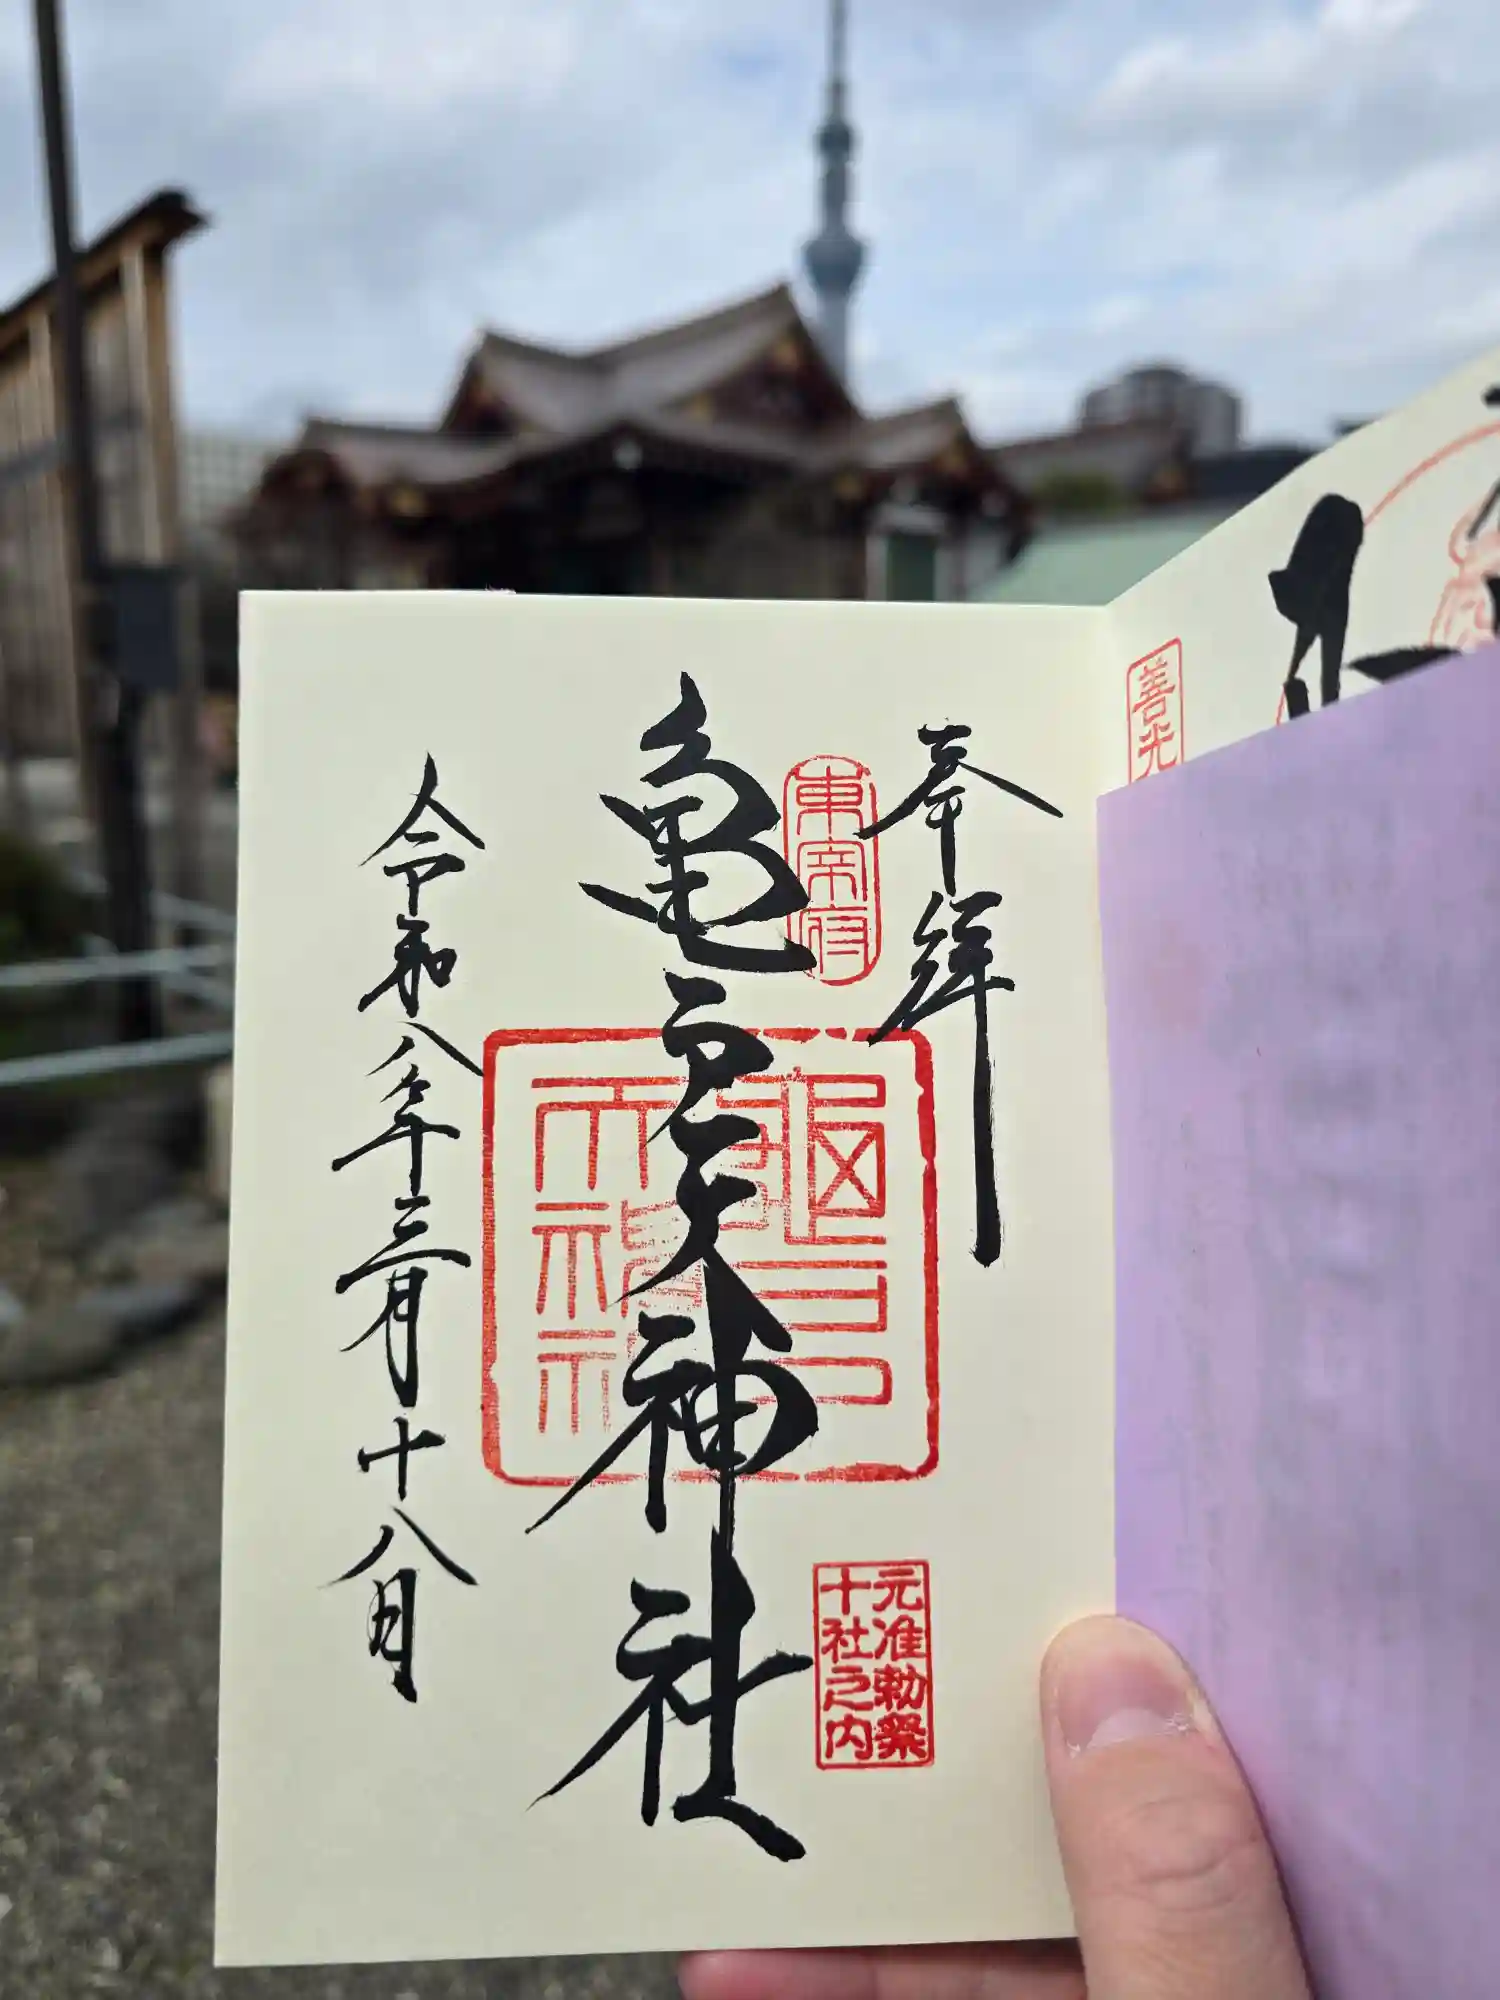 善光
奉拝
東宰府
亀戸天神社
亀戸天神社
元准勅祭
十社之内
令和八年三月十八日